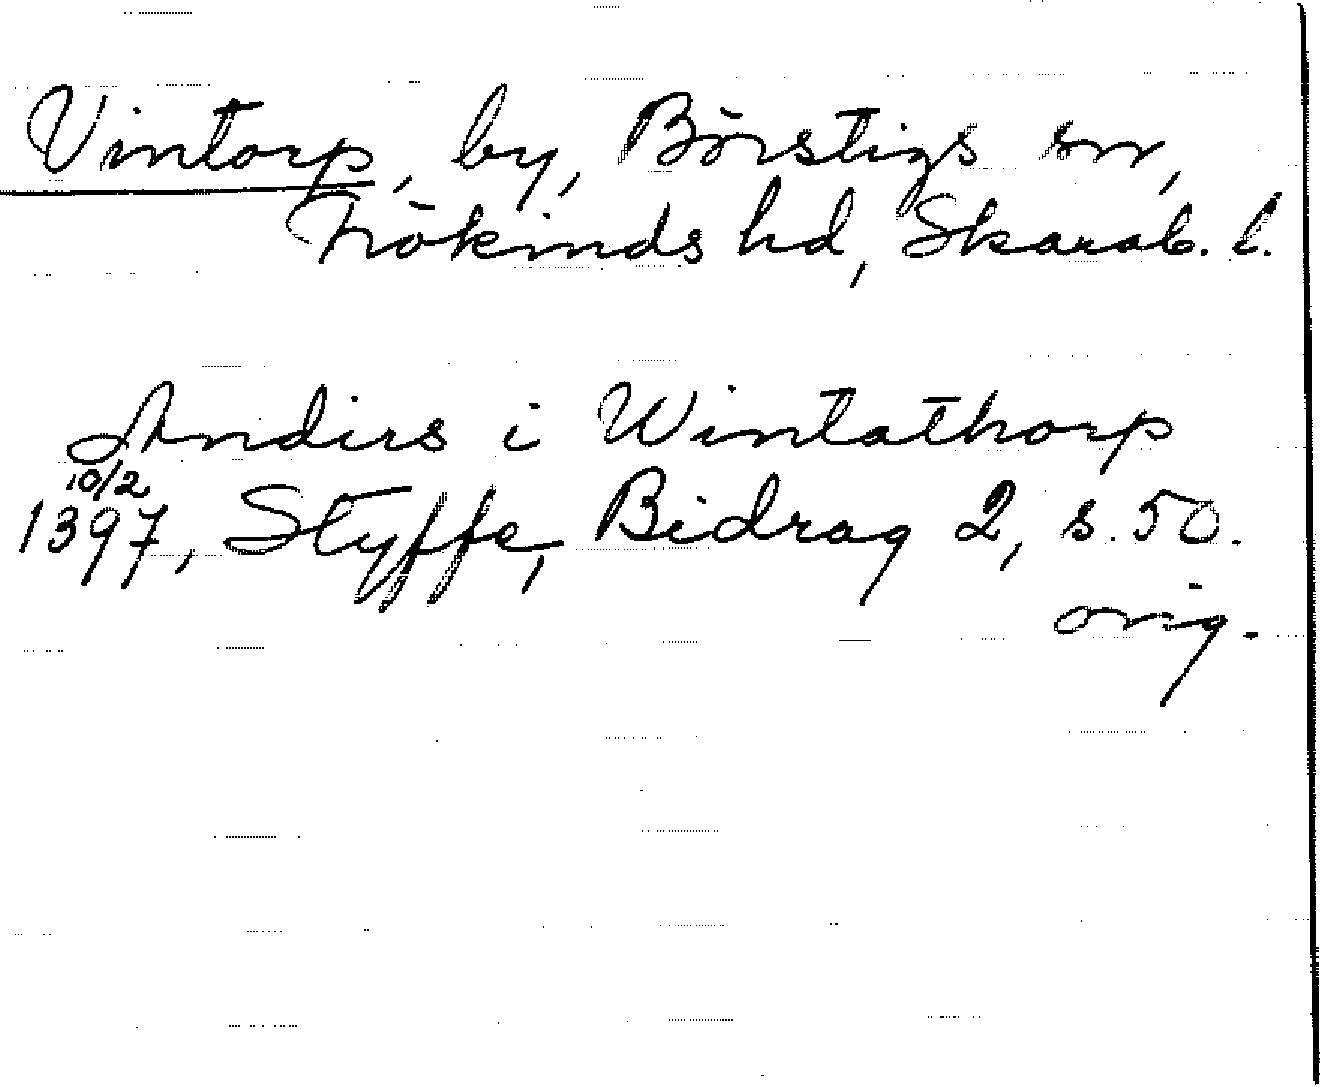 Vintorp, by, Börstigs sn,
Frökinds hd, Skarab. l.
Anders i Wintathorp
10/2
1397, Styffe, Bidrag 2, s. 50.
orig.